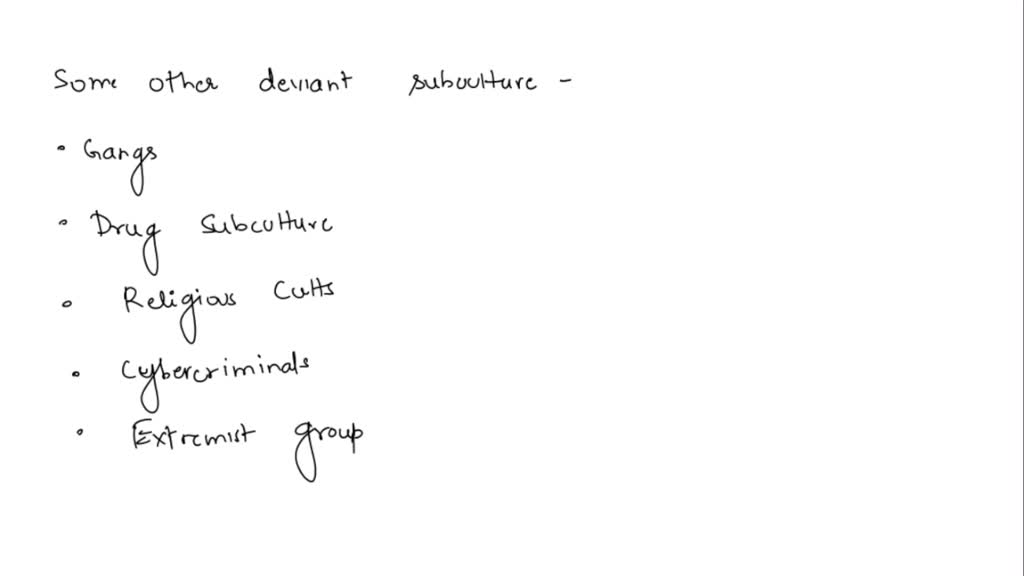 Some other deviant subculture -
• Gangs
• Drug Subculture
• Religious Cults
• Cybercriminals
• Extremist group